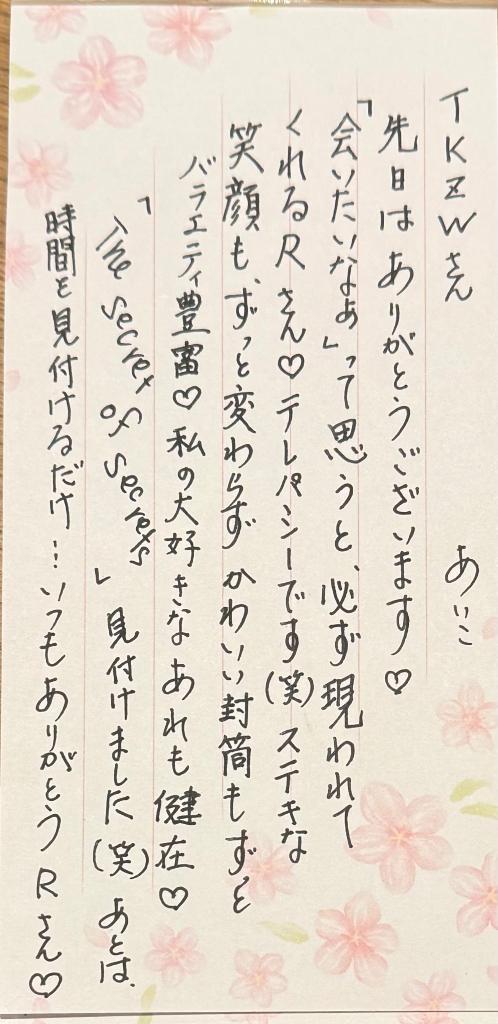 TKZWさん　あいこ
先日は ありがとうございます♡
「会いたいなぁ」って思うと、必ず現われて
くれるRさん♡テレパシーです(笑)ステキな
笑顔も、ずっと変わらず かわいい封筒もずっと
バラエティ豊富♡私の大好きな あれも健在♡
「the secret of secrets」見付けました(笑)あとは、
時間を見付けるだけ…いつもありがとう Rさん♡